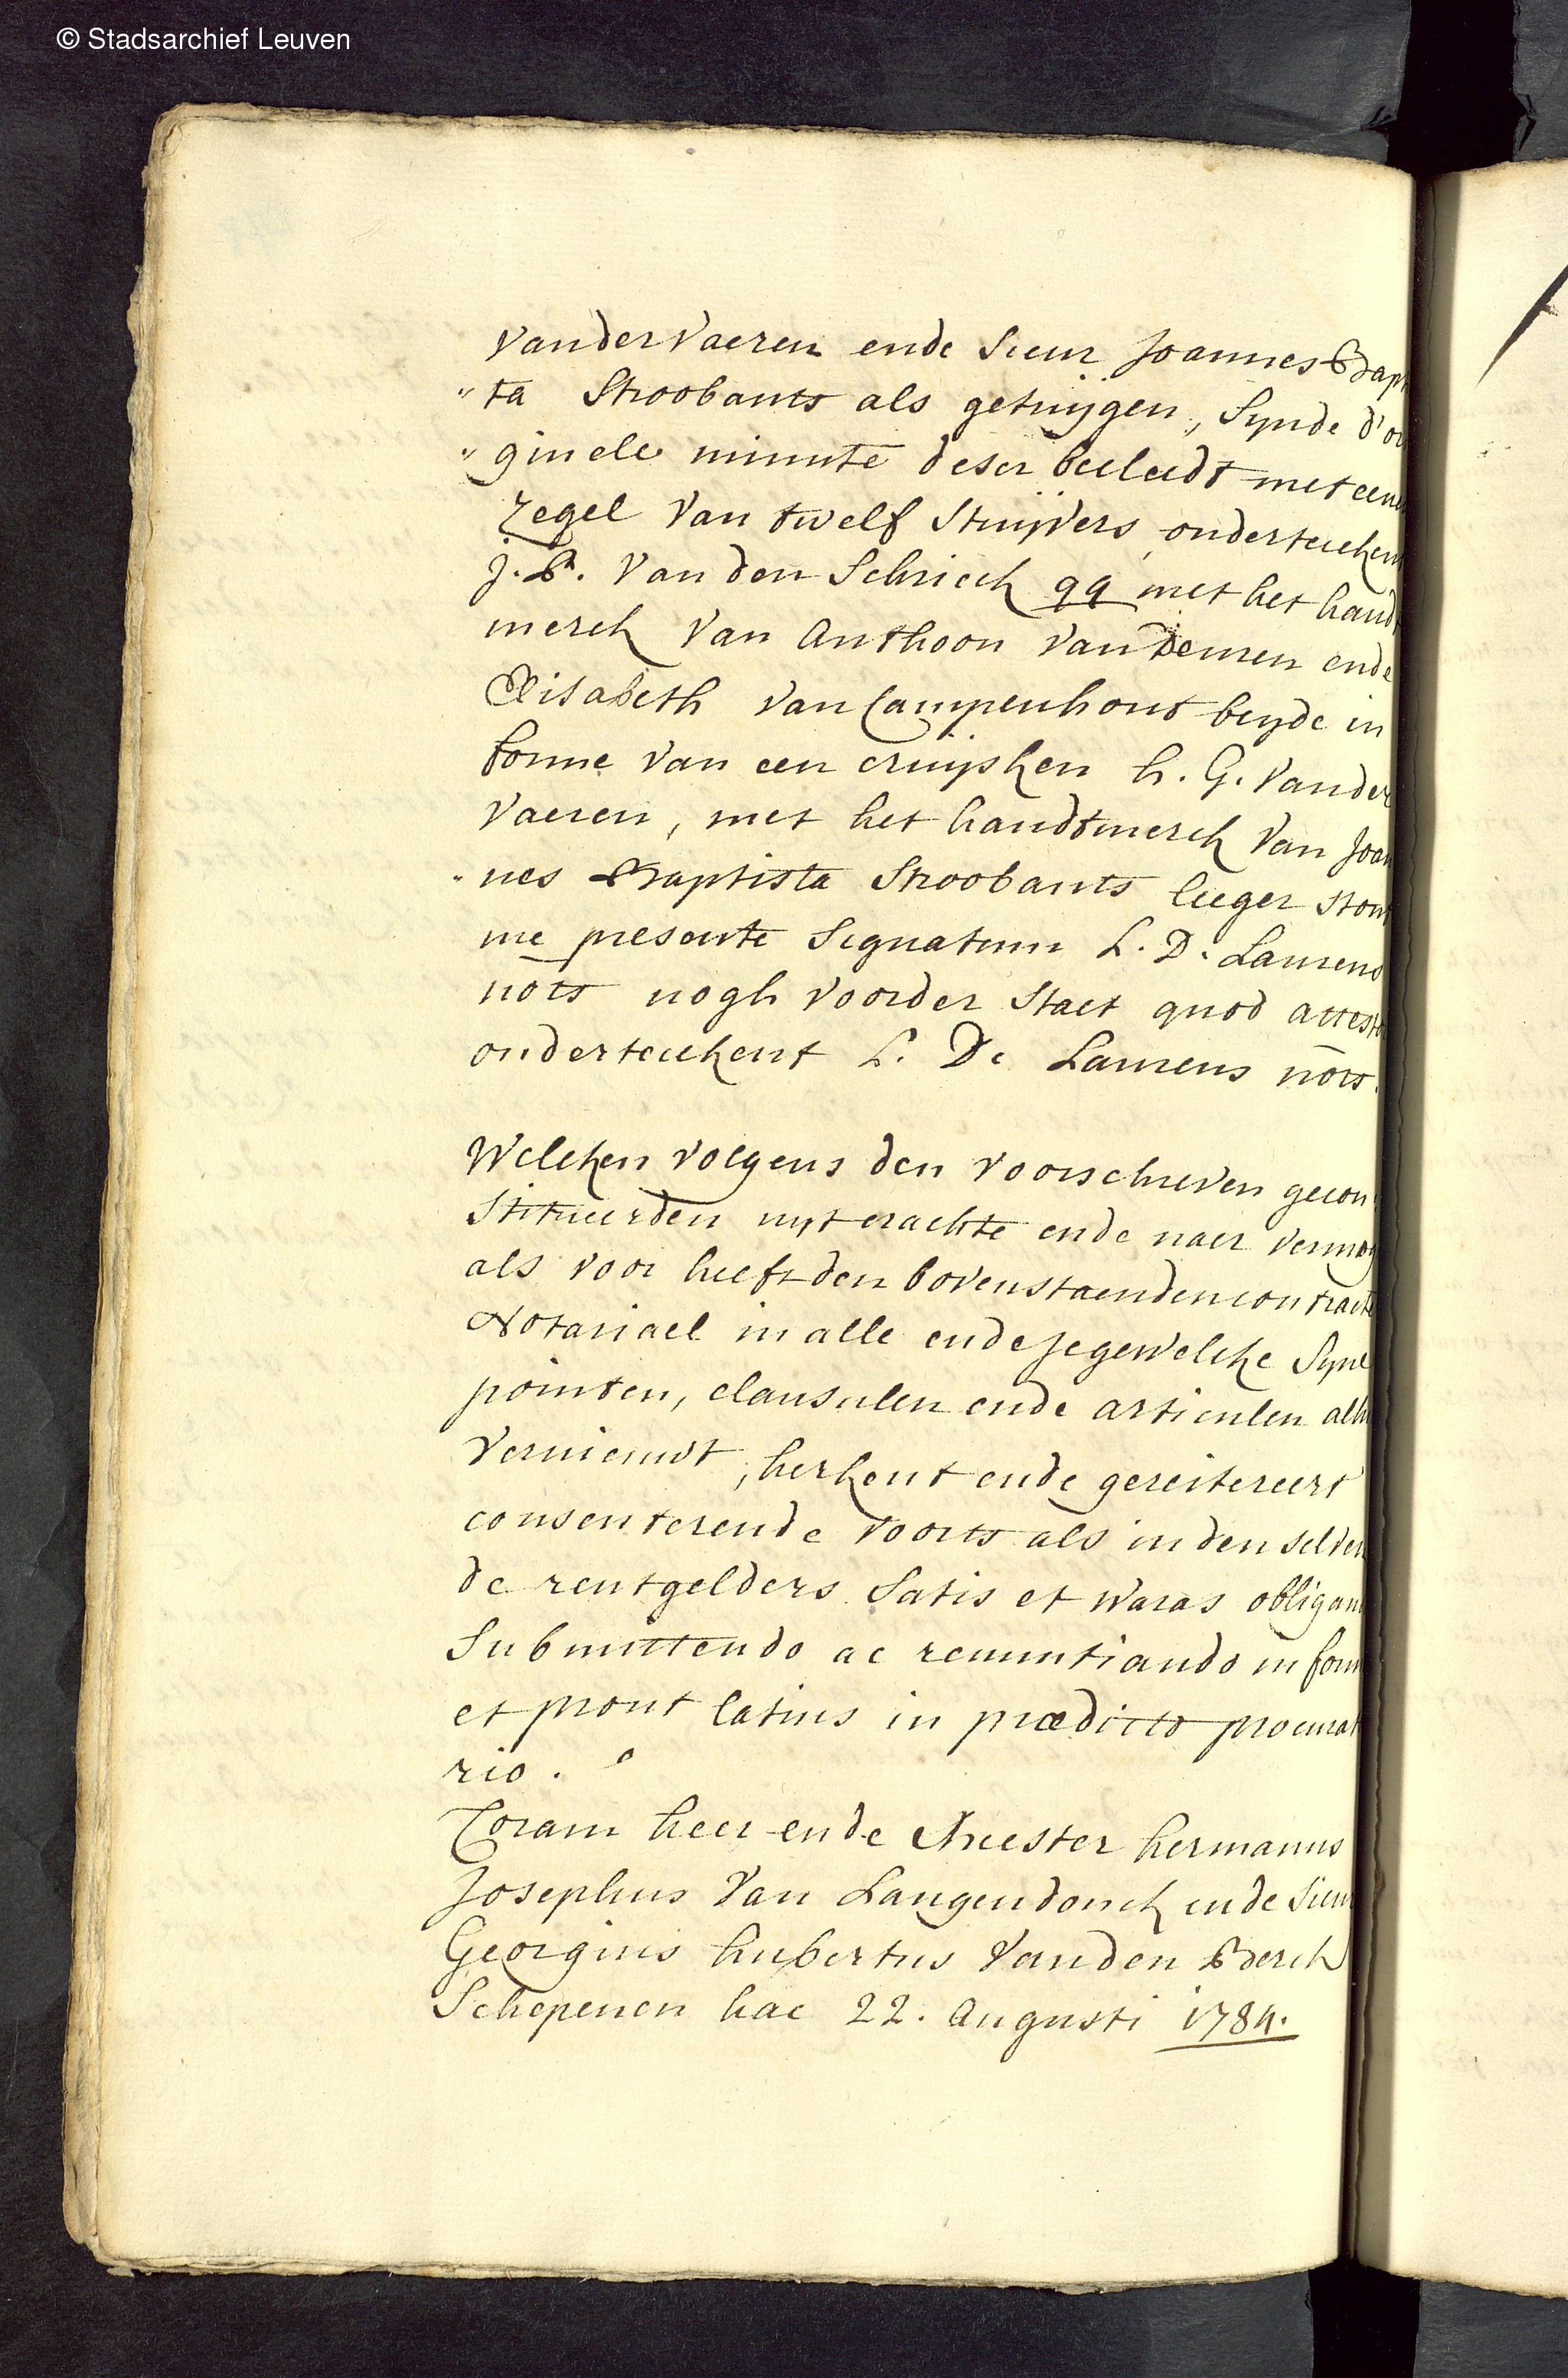 © Stadsarchief Leuven
Vandervaeren ende Sieur Joannes Bap
"ta Stroobants als getuijgen, Synde d'or
"ginele minute deser beleedt met eenen
zegel van twelf Stuijvers onderteekent
J. B. Van den Schrieck qq met het handt
merck van Anthoon van Demen ende
Elisabeth van Campenhout beyde in
forme van een cruijsken h. G. Vander
Vaeren, met het handtmerck van Joan
"nes Baptista Stroobants leeger stont
me presente Signatum L. D. Laurens
nots nogh voorder Staet quod attestor
onderteekent L. De Laurens nots.
Welcken volgens den voorschreven gecon
Stitueerden uyt crachte ende naer vermog
als voor heeft den bovenstaenden contracte
Notariael in alle ende jegewelcke Syne
pointen, clausulen ende articulen alh
vernieuwt, herkent ende gereitereert
consenterende voorts als in den selven
de rentgelders Satis et waras obligan
Submittendo ac renuntiando in form
et prout latius in prædicto procurat
rio.
Coram heer ende Meester hermanus
Josephus Van Langendonck ende Sieur
Georgius hubertus Vanden Berck
Schepenen hac 22. Augusti 1784.